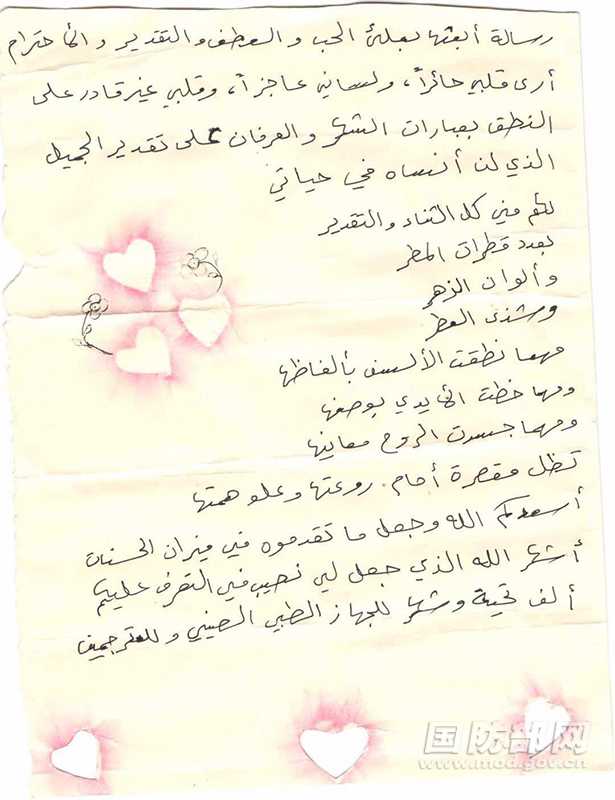 رسالة أبعثها بملئ الحب والعطف والتقدير والاحترام
أرى قلبي حائراً، ولساني عاجزاً، وقلبي غير قادر على
النطق بعبارات الشكر والعرفان على تقدير الجميل
الذي لن أنساه في حياتي
لكم مني كل الثناء والتقدير
بعدد قطرات المطر
وألوان الزهر
وشذى العطر
مهما نطقت الألسن بألفاظها
ومهما خطت الأيدي بوصفها
ومهما جسدت الروح معانيها
تظل مقصرة أمام روعتها وعلو همتها
أسعدكم الله وجعل ما تقدموه في ميزان الحسنات
أشكر الله الذي جعل لي نصيب في التعرف عليكم
ألف تحية وشكر للجهاز الطبي الصيني وللمترجمين
国防部网
www.mod.gov.cn